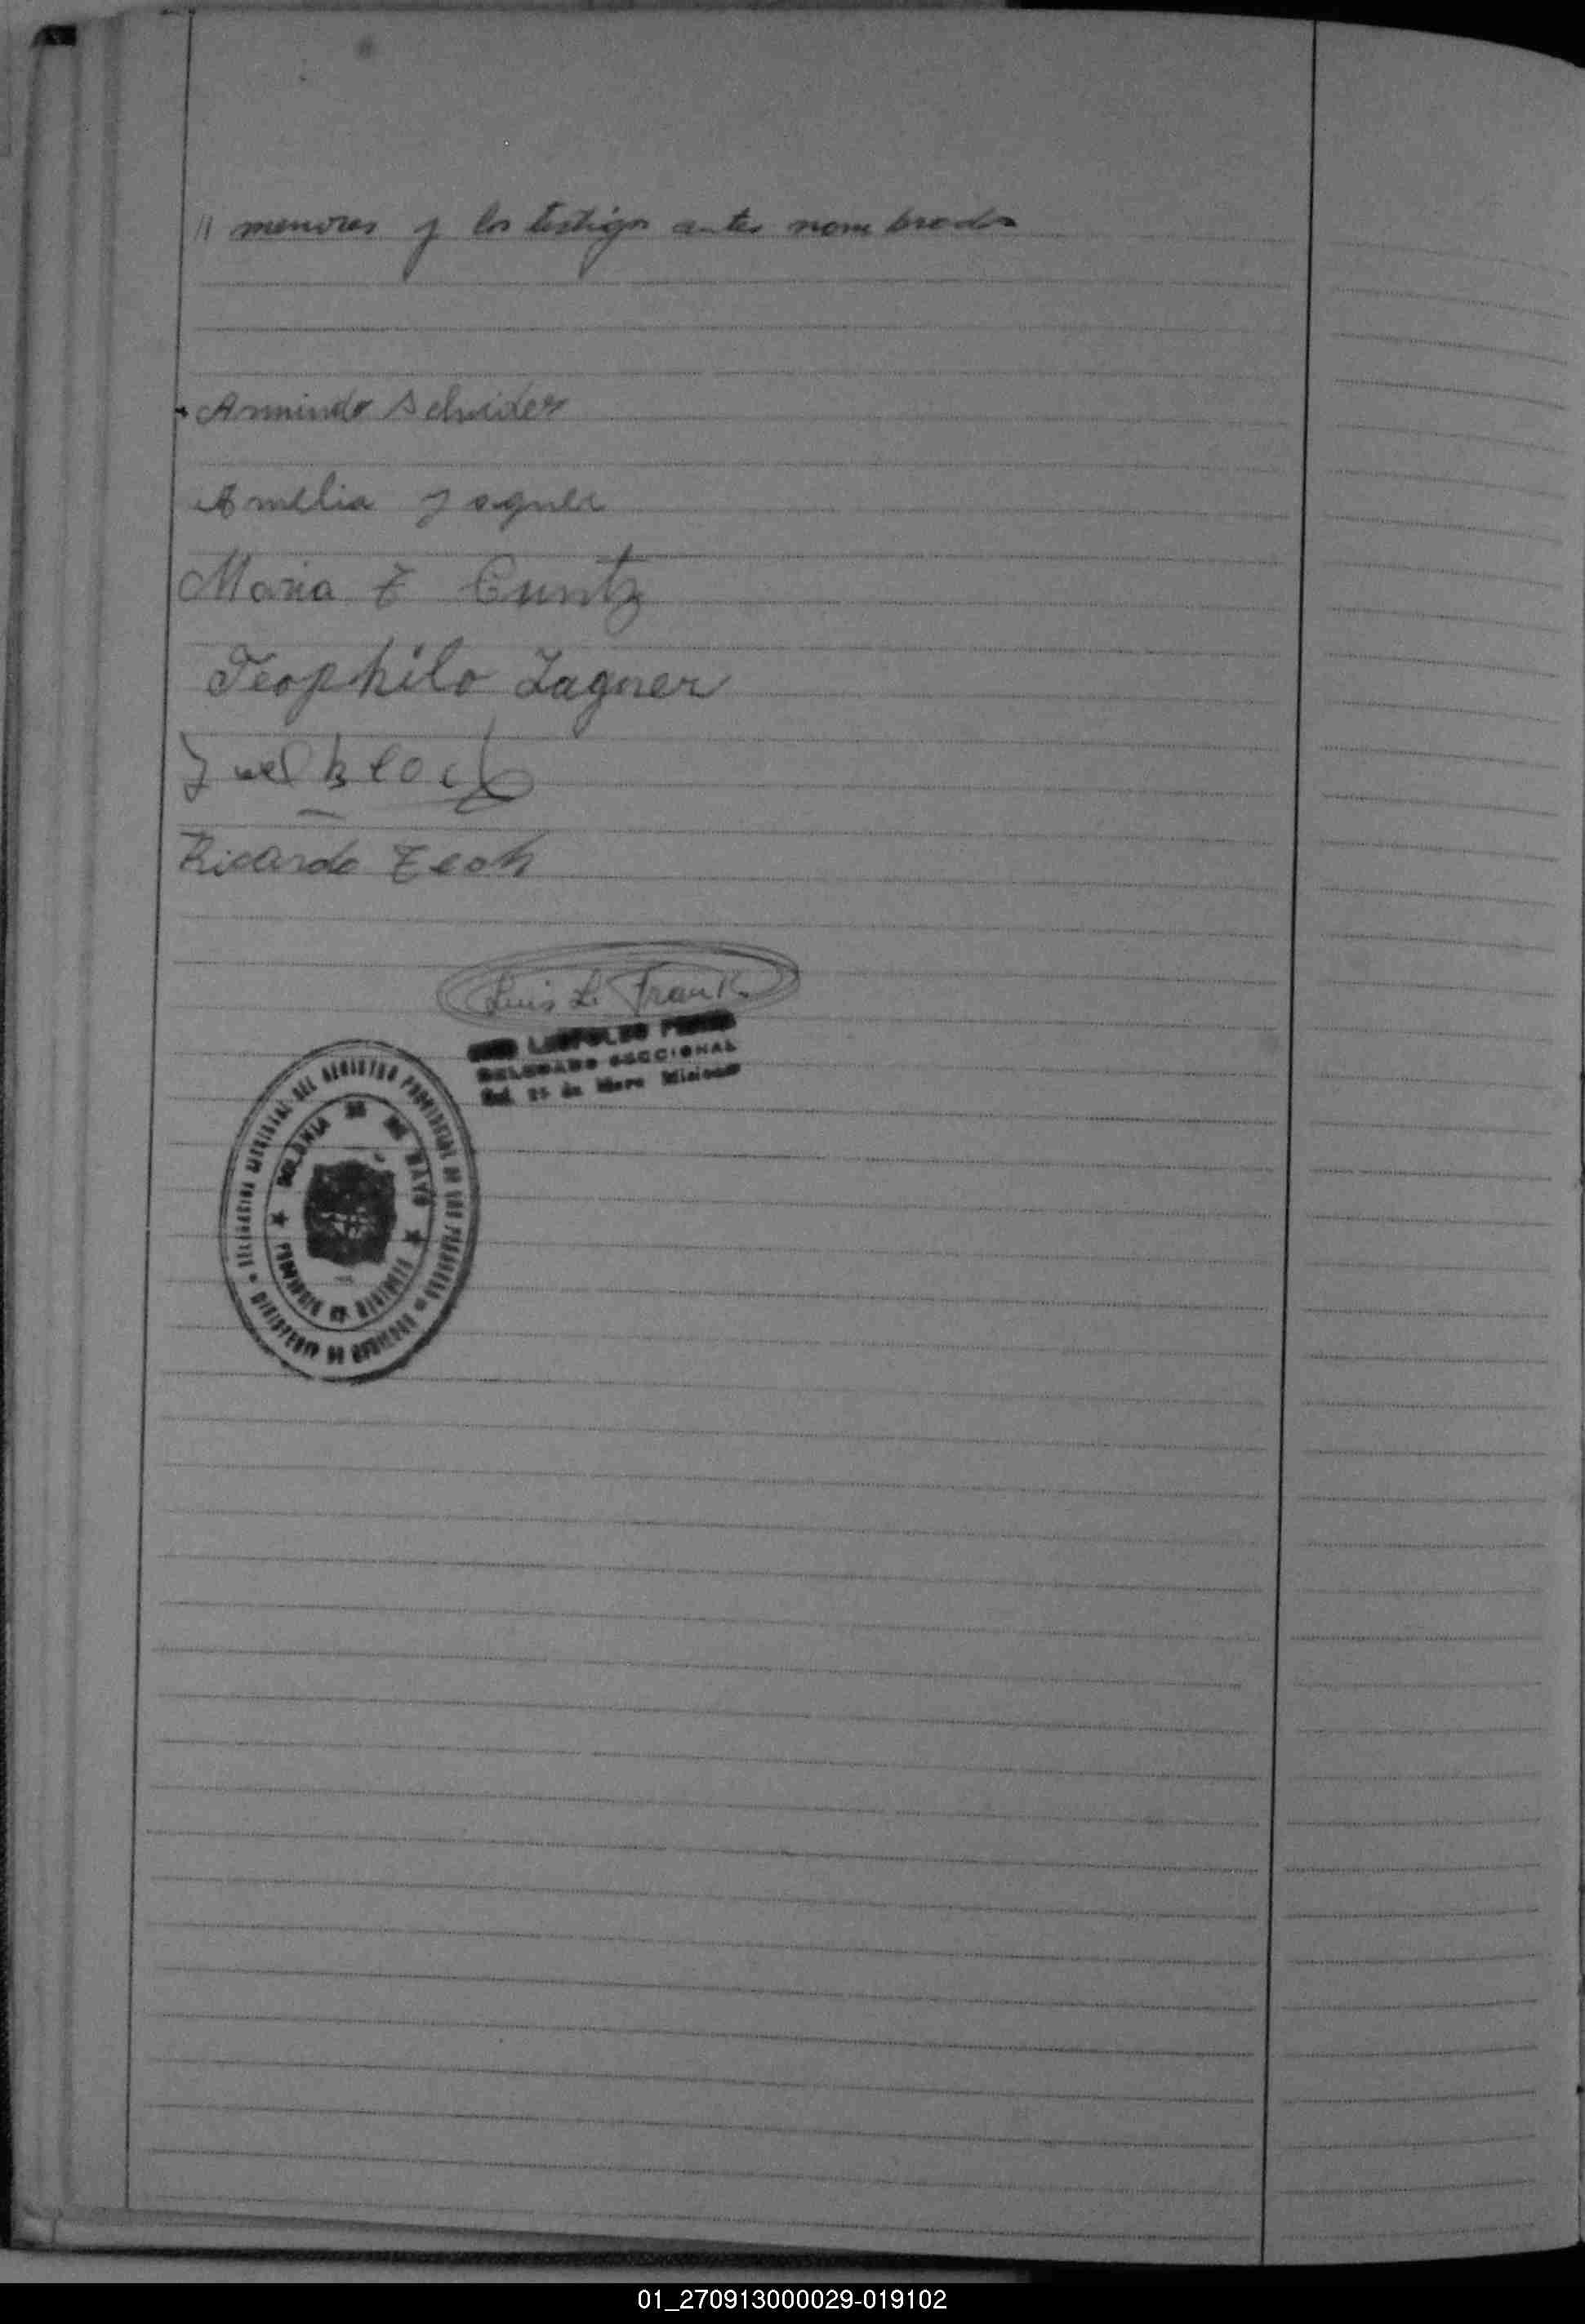 // menores y los testigos antes nombrados
Armindo Schider
Amelia Zagner
Maria Z Cuntz
Teophilo Zagner
Ricardo Zech
Luis L. Frank
LUIS LEOPOLDO FRANK
DELEGADO SECCIONAL
Col. 25 de Mayo Misiones
DELEGACION SECCIONAL DEL REGISTRO PROVINCIAL DE LAS PERSONAS
MINISTERIO DE GOBIERNO
COLONIA 25 DE MAYO
PROVINCIA DE MISIONES
01_270913000029-019102